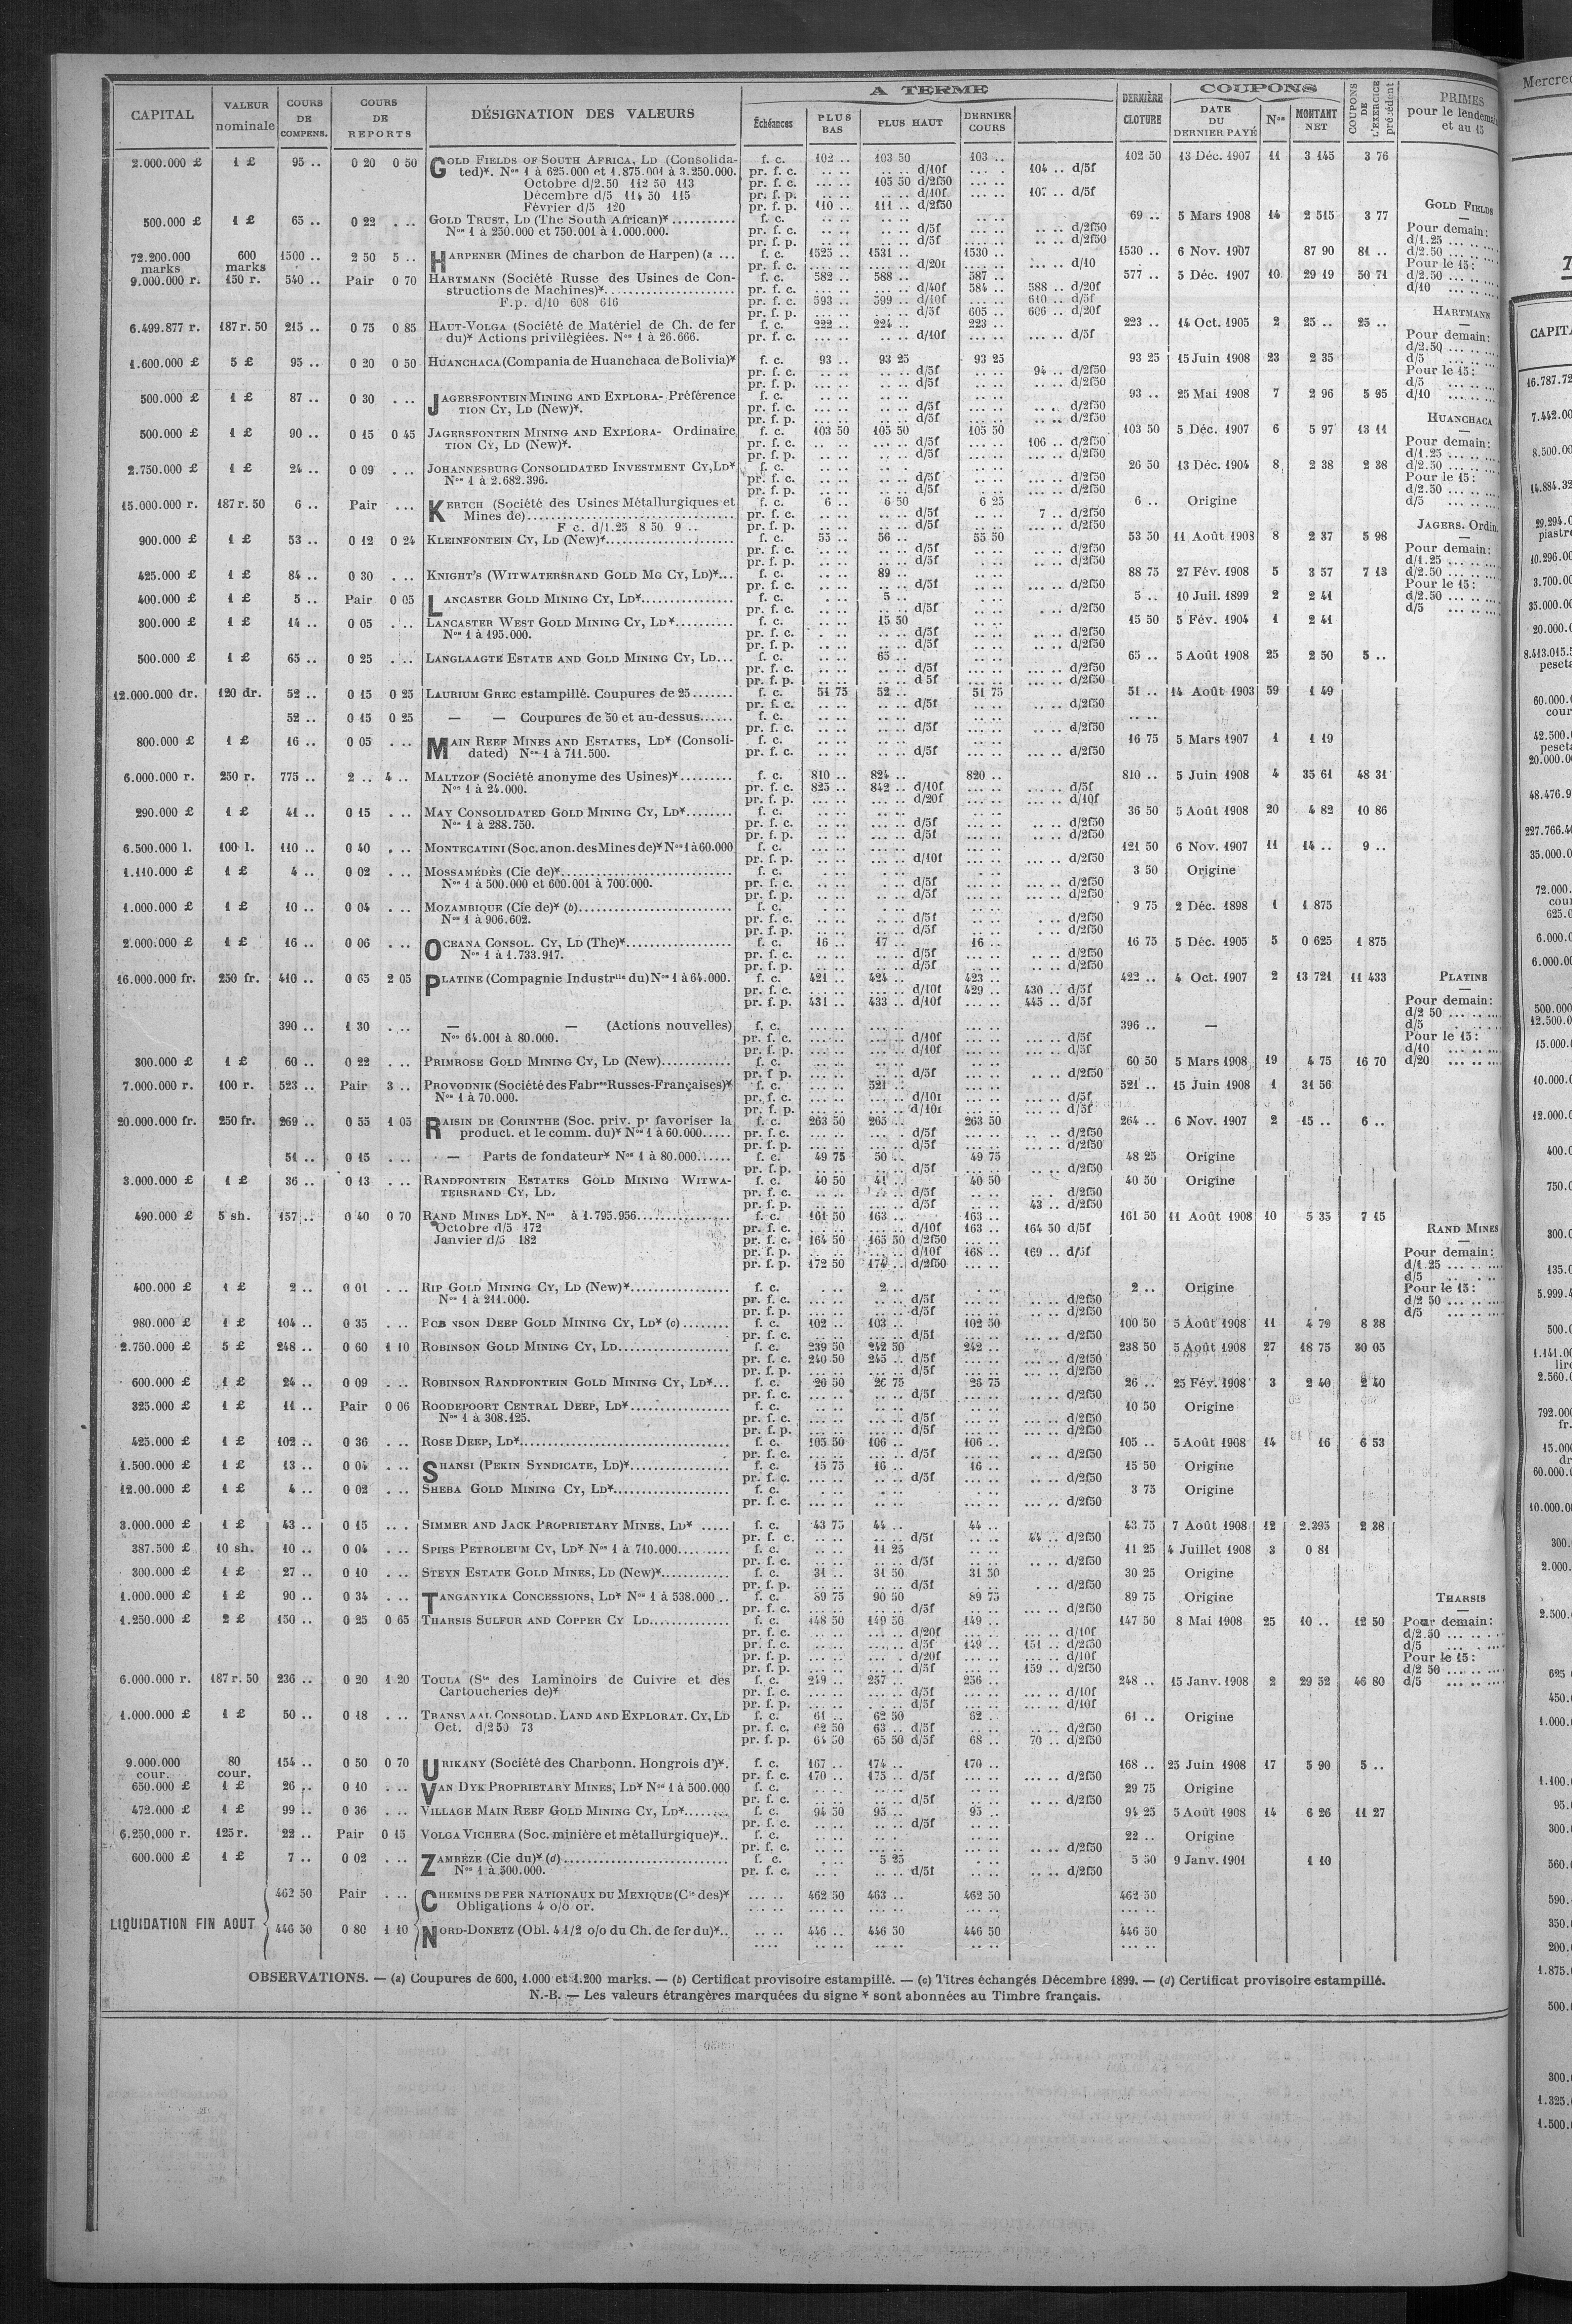 A TERME
COUPONS
CAPITAL VALEUR nominale COURS DE COMPENS. COURS DE REPORTS DÉSIGNATION DES VALEURS Échéances PLUS BAS PLUS HAUT DERNIER COURS DERNIÈRE CLOTURE DATE DU DERNIER PAYÉ Nos MONTANT NET COUPONS DE L'EXERCICE précédent PRIMES pour le lendemain et au 15
2.000.000 £ 1 £ 95 .. 0 20 0 50 GOLD FIELDS OF SOUTH AFRICA, LD (Consolida- f. c. 102 .. 103 50 103 .. 102 50 13 Déc. 1907 11 3 145 3 76
ted)*. Nos 1 à 625.000 et 1.875.001 à 3.250.000. pr. f. c. .. .. .. .. d/10f 104 .. d/5f
Octobre d/2.50 112 50 113 pr. f. c. 105 50 d/2f50
Décembre d/5 114 50 115 pr. f. p. .. .. d/10f 107 .. d/5f
Février d/5 120 pr. f. p. 110 .. 111 .. d/2f50
500.000 £ 1 £ 65 .. 0 22 . .. GOLD TRUST, LD (The South African)* f. c. 69 .. 5 Mars 1908 14 2 515 3 77
Nos 1 à 250.000 et 750.001 à 1.000.000. pr. f. c. d/5f d/2f50
pr. f. p. d/5f d/2f50
72.200.000 marks 600 marks 1500 .. 2 50 5 .. HARPENER (Mines de charbon de Harpen) (a ... f. c. 1525 .. 1531 .. 1530 .. 1530 .. 6 Nov. 1907 87 90 81 ..
9.000.000 r. 150 r. 540 .. Pair 0 70 HARTMANN (Société Russe des Usines de Con- f. c. 582 .. 588 .. 587 .. 577 .. 5 Déc. 1907 10 29 19 50 71
structions de Machines)* pr. f. c. d/40f 584 .. 588 .. d/20f
F.p. d/10 608 616 pr. f. c. 593 .. 599 .. d/10f 610 .. d/5f
pr. f. p. d/5f 605 .. 606 .. d/20f
6.499.877 r. 187 r. 50 215 .. 0 75 0 85 HAUT-VOLGA (Société de Matériel de Ch. de fer f. c. 222 .. 224 .. 223 .. 223 .. 14 Oct. 1905 2 25 .. 25 ..
du)* Actions privilégiées. Nos 1 à 26.666. pr. f. c. d/10f d/5f
1.600.000 £ 5 £ 95 .. 0 20 0 50 HUANCHACA (Compania de Huanchaca de Bolivia)* f. c. 93 .. 93 25 93 25 93 25 15 Juin 1908 23 2 35
pr. f. c. d/5f 94 .. d/2f50
pr. f. p. d/5f d/2f50
500.000 £ 1 £ 87 .. 0 30 . .. JAGERSFONTEIN MINING AND EXPLORA- Préférence f. c. 93 .. 25 Mai 1908 7 2 96 5 95
TION CY, LD (New)*. pr. f. c. d/5f d/2f50
500.000 £ 1 £ 90 .. 0 15 0 45 JAGERSFONTEIN MINING AND EXPLORA- Ordinaire f. c. 103 50 105 50 105 50 103 50 5 Déc. 1907 6 5 97 13 11
TION CY, LD (New)*. pr. f. c. d/5f 106 .. d/2f50
2.750.000 £ 1 £ 24 .. 0 09 . .. JOHANNESBURG CONSOLIDATED INVESTMENT CY, LD* f. c. 26 50 13 Déc. 1904 8 2 38 2 38
Nos 1 à 2.682.396. pr. f. c. d/5f d/2f50
15.000.000 r. 187 r. 50 6 .. Pair ... KERTCH (Société des Usines Métallurgiques et f. c. 6 .. 6 50 6 25 6 .. Origine
Mines de) pr. f. c. d/5f 7 .. d/2f50
F c. d/1.25 8 50 9 .. pr. f. p. d/5f d/2f50
900.000 £ 1 £ 53 .. 0 12 0 24 KLEINFONTEIN CY, LD (New)* f. c. 55 .. 56 .. 55 50 53 50 11 Août 1908 8 2 37 5 98
425.000 £ 1 £ 84 .. 0 30 . .. KNIGHT'S (WITWATERSRAND GOLD MG CY, LD)* f. c. 89 .. 88 75 27 Fév. 1908 5 3 57 7 13
400.000 £ 1 £ 5 .. Pair 0 05 LANCASTER GOLD MINING CY, LD* f. c. 5 .. 5 .. 10 Juil. 1899 2 2 41
300.000 £ 1 £ 14 .. 0 05 . .. LANCASTER WEST GOLD MINING CY, LD* f. c. 15 50 15 50 5 Fév. 1904 1 2 41
Nos 1 à 195.000. pr. f. c. d/5f d/2f50
500.000 £ 1 £ 65 .. 0 25 . .. LANGLAAGTE ESTATE AND GOLD MINING CY, LD... f. c. 65 .. 65 .. 5 Août 1908 25 2 50 5 ..
12.000.000 dr. 120 dr. 52 .. 0 15 0 25 LAURIUM GREC estampillé. Coupures de 25 f. c. 51 75 52 .. 51 75 51 .. 14 Août 1903 59 1 49
52 .. 0 15 0 25 — — Coupures de 50 et au-dessus f. c.
800.000 £ 1 £ 16 .. 0 05 . .. MAIN REEF MINES AND ESTATES, LD* (Consoli- f. c. 16 75 5 Mars 1907 1 1 19
dated) Nos 1 à 711.500. pr. f. c. d/5f d/2f50
6.000.000 r. 250 r. 775 .. 2 .. 4 .. MALTZOF (Société anonyme des Usines)* f. c. 810 .. 824 .. 820 .. 810 .. 5 Juin 1908 4 35 61 48 31
Nos 1 à 24.000. pr. f. c. 825 .. 842 .. d/10f d/5f
pr. f. p. d/20f d/10f
290.000 £ 1 £ 41 .. 0 15 . .. MAY CONSOLIDATED GOLD MINING CY, LD* f. c. 36 50 5 Août 1908 20 4 82 10 86
Nos 1 à 288.750. pr. f. c. d/5f d/2f50
6.500.000 l. 100 l. 110 .. 0 40 . .. MONTECATINI (Soc. anon. des Mines de)* Nos 1 à 60.000 f. c. 121 50 6 Nov. 1907 11 14 .. 9 ..
1.110.000 £ 1 £ 4 .. 0 02 . .. MOSSAMÉDÈS (Cie de)* f. c. 3 50 Origine
Nos 1 à 500.000 et 600.001 à 700.000. pr. f. c. d/5f d/2f50
1.000.000 £ 1 £ 10 .. 0 04 . .. MOZAMBIQUE (Cie de)* (b) f. c. 9 75 2 Déc. 1898 1 1 875
Nos 1 à 906.602. pr. f. c. d/5f d/2f50
2.000.000 £ 1 £ 16 .. 0 06 . .. OCEANA CONSOL. CY, LD (The)* f. c. 16 .. 17 .. 16 .. 16 75 5 Déc. 1905 5 0 625 1 875
Nos 1 à 1.733.917. pr. f. c. d/5f d/2f50
16.000.000 fr. 250 fr. 410 .. 0 65 2 05 PLATINE (Compagnie Industrlle du) Nos 1 à 64.000. f. c. 421 .. 424 .. 423 .. 422 .. 4 Oct. 1907 2 13 721 11 433
pr. f. c. d/10f 429 .. 430 .. d/5f
pr. f. p. 431 .. 433 .. d/10f 445 .. d/5f
390 .. 1 30 . .. — — (Actions nouvelles) f. c. 396 .. —
Nos 64.001 à 80.000. pr. f. c. d/10f d/5f
300.000 £ 1 £ 60 .. 0 22 . .. PRIMROSE GOLD MINING CY, LD (New) f. c. 60 50 5 Mars 1908 19 4 75 16 70
7.000.000 r. 100 r. 523 .. Pair 3 .. PROVODNIK (Société des Fabres Russes-Françaises)* f. c. 521 .. 521 .. 15 Juin 1908 1 31 56
Nos 1 à 70.000. pr. f. c. d/10f d/5f
20.000.000 fr. 250 fr. 269 .. 0 55 1 05 RAISIN DE CORINTHE (Soc. priv. pr favoriser la f. c. 263 50 265 .. 263 50 264 .. 6 Nov. 1907 2 15 .. 6 ..
product. et le comm. du)* Nos 1 à 60.000 pr. f. c. d/5f d/2f50
51 .. 0 15 . .. — Parts de fondateur* Nos 1 à 80.000 f. c. 49 75 50 .. 49 75 48 25 Origine
3.000.000 £ 1 £ 36 .. 0 13 . .. RANDFONTEIN ESTATES GOLD MINING WITWA- f. c. 40 50 41 .. 40 50 40 50 Origine
TERSRAND CY, LD. pr. f. c. d/5f d/2f50
pr. f. p. d/5f 43 .. d/2f50
490.000 £ 5 sh. 157 .. 0 40 0 70 RAND MINES LD*. Nos à 1.795.956 f. c. 161 50 163 .. 163 .. 161 50 11 Août 1908 10 5 35 7 15
Octobre d/5 172 pr. f. c. d/10f 163 .. 164 50 d/5f
Janvier d/5 182 pr. f. c. 164 50 165 50 d/2f50
pr. f. p. d/10f 168 .. 169 .. d/5f
pr. f. p. 172 50 174 .. d/2f50
400.000 £ 1 £ 2 .. 0 01 . .. RIP GOLD MINING CY, LD (New)* f. c. 2 .. 2 .. Origine
Nos 1 à 211.000. pr. f. c. d/5f d/2f50
980.000 £ 1 £ 104 .. 0 35 . .. ROB NSON DEEP GOLD MINING CY, LD* (c) f. c. 102 .. 103 .. 102 50 100 50 5 Août 1908 11 4 79 8 38
2.750.000 £ 5 £ 248 .. 0 60 1 10 ROBINSON GOLD MINING CY, LD f. c. 239 50 242 50 242 .. 238 50 5 Août 1908 27 18 75 30 05
pr. f. c. 240 50 245 .. d/5f d/2f50
600.000 £ 1 £ 24 .. 0 09 . .. ROBINSON RANDFONTEIN GOLD MINING CY, LD* f. c. 26 50 26 75 26 75 26 .. 25 Fév. 1908 3 2 40 2 40
325.000 £ 1 £ 11 .. Pair 0 06 ROODEPOORT CENTRAL DEEP, LD* f. c. 10 50 Origine
Nos 1 à 308.125. pr. f. c. d/5f d/2f50
425.000 £ 1 £ 102 .. 0 36 . .. ROSE DEEP, LD* f. c. 105 50 106 .. 106 .. 105 .. 5 Août 1908 14 16 6 53
1.500.000 £ 1 £ 13 .. 0 04 . .. SHANSI (PEKIN SYNDICATE, LD)* f. c. 15 75 16 .. 16 .. 15 50 Origine
12.00.000 £ 1 £ 4 .. 0 02 . .. SHEBA GOLD MINING CY, LD* f. c. 3 75 Origine
3.000.000 £ 1 £ 43 .. 0 15 . .. SIMMER AND JACK PROPRIETARY MINES, LD* f. c. 43 75 44 .. 44 .. 43 75 7 Août 1908 12 2.395 2 38
pr. f. c. d/5f 44 .. d/2f50
387.500 £ 10 sh. 10 .. 0 04 . .. SPIES PETROLEUM CY, LD* Nos 1 à 710.000 f. c. 11 25 11 25 4 Juillet 1908 3 0 81
300.000 £ 1 £ 27 .. 0 10 . .. STEYN ESTATE GOLD MINES, LD (New)* f. c. 31 .. 31 50 31 50 30 25 Origine
1.000.000 £ 1 £ 90 .. 0 34 . .. TANGANYIKA CONCESSIONS, LD* Nos 1 à 538.000 f. c. 89 75 90 50 89 75 89 75 Origine
1.250.000 £ 2 £ 150 .. 0 25 0 65 THARSIS SULFUR AND COPPER CY LD f. c. 148 50 149 50 149 .. 147 50 8 Mai 1908 25 10 .. 12 50
pr. f. c. d/20f d/10f
pr. f. c. d/5f 149 .. 151 .. d/2f50
pr. f. p. d/20f d/10f
pr. f. p. d/5f 159 .. d/2f50
6.000.000 r. 187 r. 50 236 .. 0 20 1 20 TOULA (Sté des Laminoirs de Cuivre et des f. c. 249 .. 257 .. 256 .. 248 .. 15 Janv. 1908 2 29 52 46 80
Cartoucheries de)* pr. f. c. d/5f d/10f
1.000.000 £ 1 £ 50 .. 0 18 . .. TRANSVAAL CONSOLID. LAND AND EXPLORAT. CY, LD f. c. 61 .. 62 50 62 .. 61 .. Origine
Oct. d/2 50 73 pr. f. c. 62 50 63 .. d/5f d/2f50
pr. f. p. 64 50 65 50 d/5f 68 .. 70 .. d/2f50
9.000.000 cour. 80 cour. 154 .. 0 50 0 70 URIKANY (Société des Charbonn. Hongrois d')*. f. c. 167 .. 174 .. 170 .. 168 .. 25 Juin 1908 17 5 90 5 ..
pr. f. c. 170 .. 175 .. d/5f d/2f50
650.000 £ 1 £ 26 .. 0 10 . .. VAN DYK PROPRIETARY MINES, LD* Nos 1 à 500.000 f. c. 29 75 Origine
472.000 £ 1 £ 99 .. 0 36 . .. VILLAGE MAIN REEF GOLD MINING CY, LD* f. c. 94 50 95 .. 95 .. 94 25 5 Août 1908 14 6 26 11 27
6.250.000 r. 125 r. 22 .. Pair 0 15 VOLGA VICHERA (Soc. minière et métallurgique)*.. f. c. 22 .. Origine
600.000 £ 1 £ 7 .. 0 02 . .. ZAMBÈZE (Cie du)* (d) f. c. 5 25 5 50 9 Janv. 1901 1 10
Nos 1 à 500.000. pr. f. c. d/5f d/2f50
LIQUIDATION FIN AOUT
462 50 Pair . .. CHEMINS DE FER NATIONAUX DU MEXIQUE (Cie des)* 462 50 463 .. 462 50 462 50
Obligations 4 o/o or.
446 50 0 80 1 10 NORD-DONETZ (Obl. 4 1/2 o/o du Ch. de fer du)*.. 446 .. 446 50 446 50 446 50
GOLD FIELDS
Pour demain:
d/1.25
d/2.50
Pour le 15:
d/2.50
d/10
HARTMANN
Pour demain:
d/2.50
d/5
Pour le 15:
d/5
d/10
HUANCHACA
Pour demain:
d/1.25
d/2.50
Pour le 15:
d/2.50
d/5
JAGERS. Ordin.
Pour demain:
d/1.25
d/2.50
Pour le 15:
d/2.50
d/5
PLATINE
Pour demain:
d/2 50
d/5
Pour le 15:
d/10
d/20
RAND MINES
Pour demain:
d/1.25
d/5
Pour le 15:
d/2 50
d/5
THARSIS
Pour demain:
d/2.50
d/5
Pour le 15:
d/2 50
d/5
OBSERVATIONS. — (a) Coupures de 600, 1.000 et 1.200 marks. — (b) Certificat provisoire estampillé. — (c) Titres échangés Décembre 1899. — (d) Certificat provisoire estampillé.
N.-B. — Les valeurs étrangères marquées du signe * sont abonnées au Timbre français.